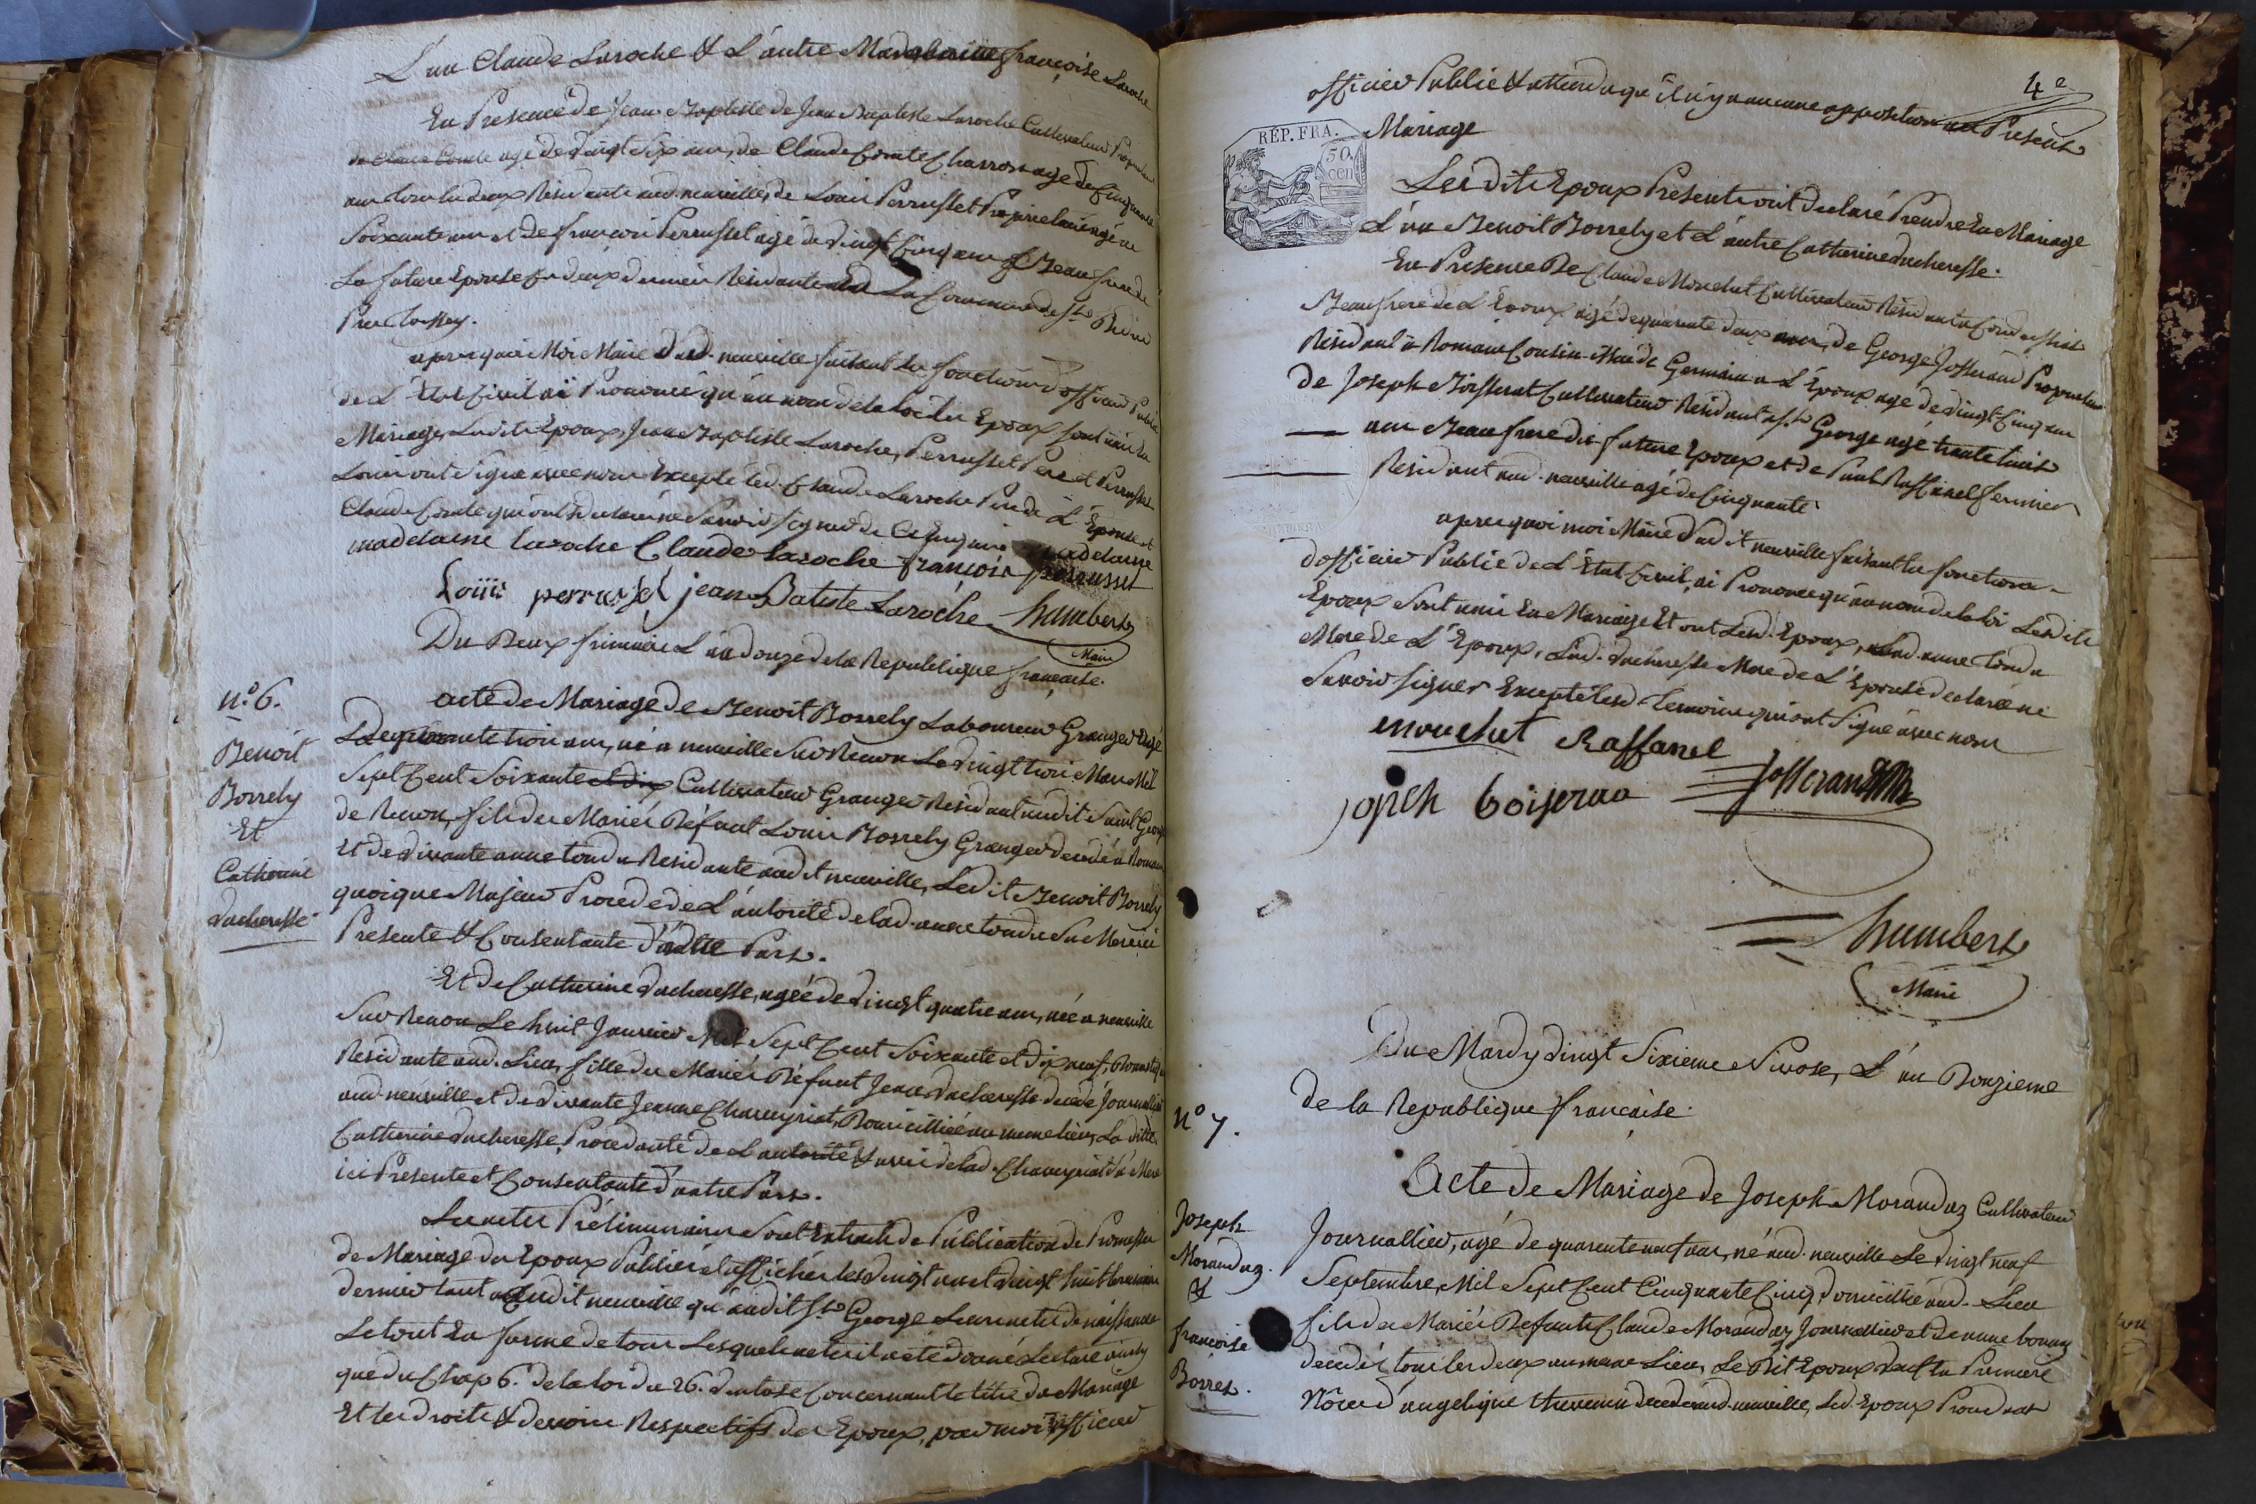 L'un Claude Laroche & L'autre Madelaine françoise Laroche
En Presence de Jean Baptiste de Jean Baptiste Laroche Cultivateur
agé de vingt Six ans, de Claude Comte Charron agé de Cinquante
ans tous les deux Résidants aud. neuville, de Louis Perrusset Propriétaire agé de
Soixante ans et de françois Perrusset agé de vingt Cinq ans Beau frere de
La future Epouse Ces deux derniers Résidants La Commune de St
après quoi Moi Maire dud. neuville faisant les fonctions d'officier Public
de L'Etat Civil ai Prononcé qu'au nom de la loi les Epoux sont unis en
Mariage, Lesdits Epoux, Jean Baptiste Laroche, Perrusset Pere et Perrusset
Louis ont Signé avec nous Excepté led. Claude Laroche Pere de L'Epouse et
Claude Comte qui ont déclaré ne Savoir signer de Ce Enquis
madelaine laroche Claude laroche françois perrusset
Loüis perrussel jean Batiste Laroche humbert
Maire
Du Deux frimaire L'an douze de la Republique française.
n.o 6.
Benoit
Borrely
Et
Catherine
ducheresse
acte de Mariage de Benoit Borrely Laboureur Granger agé
de trente trois ans, né a neuville Sur Renon Le vingt trois Mars Mil
Sept Cent Soixante et dix Cultivateur Granger Résidant audit Saint George
de Renon, fils des Mariés Défunt Louis Borrely Granger décédé a Romans
Et de vivante anne tondu Résidante audit neuville, Ledit Benoit Borrely
quoique Majeur Procede de L'autorité de lad. anne tondu Sa Mere ici
Presente & Consentante d'autre Part.
Et de Catherine ducheresse, agée de vingt quatre ans, née a neuville
Sur Renon Le huit Janvier Mil Sept Cent Soixante et dix neuf,
Résidante aud. Lieu, fille des Mariés Défunt Jean ducheresse décédé Journallier
aud. neuville et de vivante Jeanne Chaveyriat, Domicilliée au meme lieu, La ditte
Catherine ducheresse Procedante de L'autorité & avis de lad. Chaveyriat Sa Mere
ici Presente et Consentante d'autre Part.
Les actes Préliminaires Sont Extraits de Publication de Promesses
de Mariage des Epoux Publiées et affichées les vingt un et vingt huit brumaire
dernier tant audit neuville qu'audit St George Les actes de naissances
Le tout En forme de tous Lesquels actes il a été donné Lecture ainsy
que du Chap 6. de la loi du 26. ventose Concernant le titre du Mariage
Et les droits & devoirs Respectifs des Epoux, par moi officier
4e
officier Public & attendu qu'il n'y a aucune opposition au Présent
Mariage
RÉP. FRA.
50.
cen
Lesdits Epoux Présents ont declaré Prendre En Mariage
L'un Benoit Borrely et L'autre Catherine ducheresse.
En Presence De Claude Mouchut Cultivateur Résidant a Condeissiat
Beau frere de L'Epoux agé de quarante deux ans, de George Josserand Propriétaire
Résidant a Romans Cousin issu de Germain a L'Epoux agé de vingt Cinq ans
de Joseph Boisserat Cultivateur Résidant a St. George agé trente trois
ans Beau frere du future Epoux et de Paul Raffanel fermier
Résidant aud. neuville agé de Cinquante
apres quoi moi Maire dudit neuville faisant les fonctions
d'officier Public de L'Etat Civil, ai Prononcé qu'au nom de la loi Lesdits
Epoux Sont unis En Mariage Et ont Lesd. Epoux, lad. anne tondu
Mere de L'Epoux, Lad. ducheresse Mere de L'Epouse declaré ne
Savoir signer Excepté lesd. temoins qui ont Signé avec nous
mouchut Raffanel
joseh boiserao Josserand
humbert
Maire
Du Mardy vingt Sixieme Nivose, L'an Douzieme
de la Republique française.
n.o 7.
Joseph
Morandaz.
&
françoise
Borret.
Acte de Mariage de Joseph Morandaz Cultivateur
Journallier, agé de quarante neuf ans, né aud. neuville Le vingt neuf
Septembre Mil Sept Cent Cinquante Cinq, domicillié aud. Lieu
fils des Mariés Défunts Claude Morandaz Journallier et Deanne
decedés tous les deux au meme Lieu, Le Dit Epoux veuf En Premiere
Nôces d'angelique thevenin decedé aud. neuville, Led. Epoux Procedant